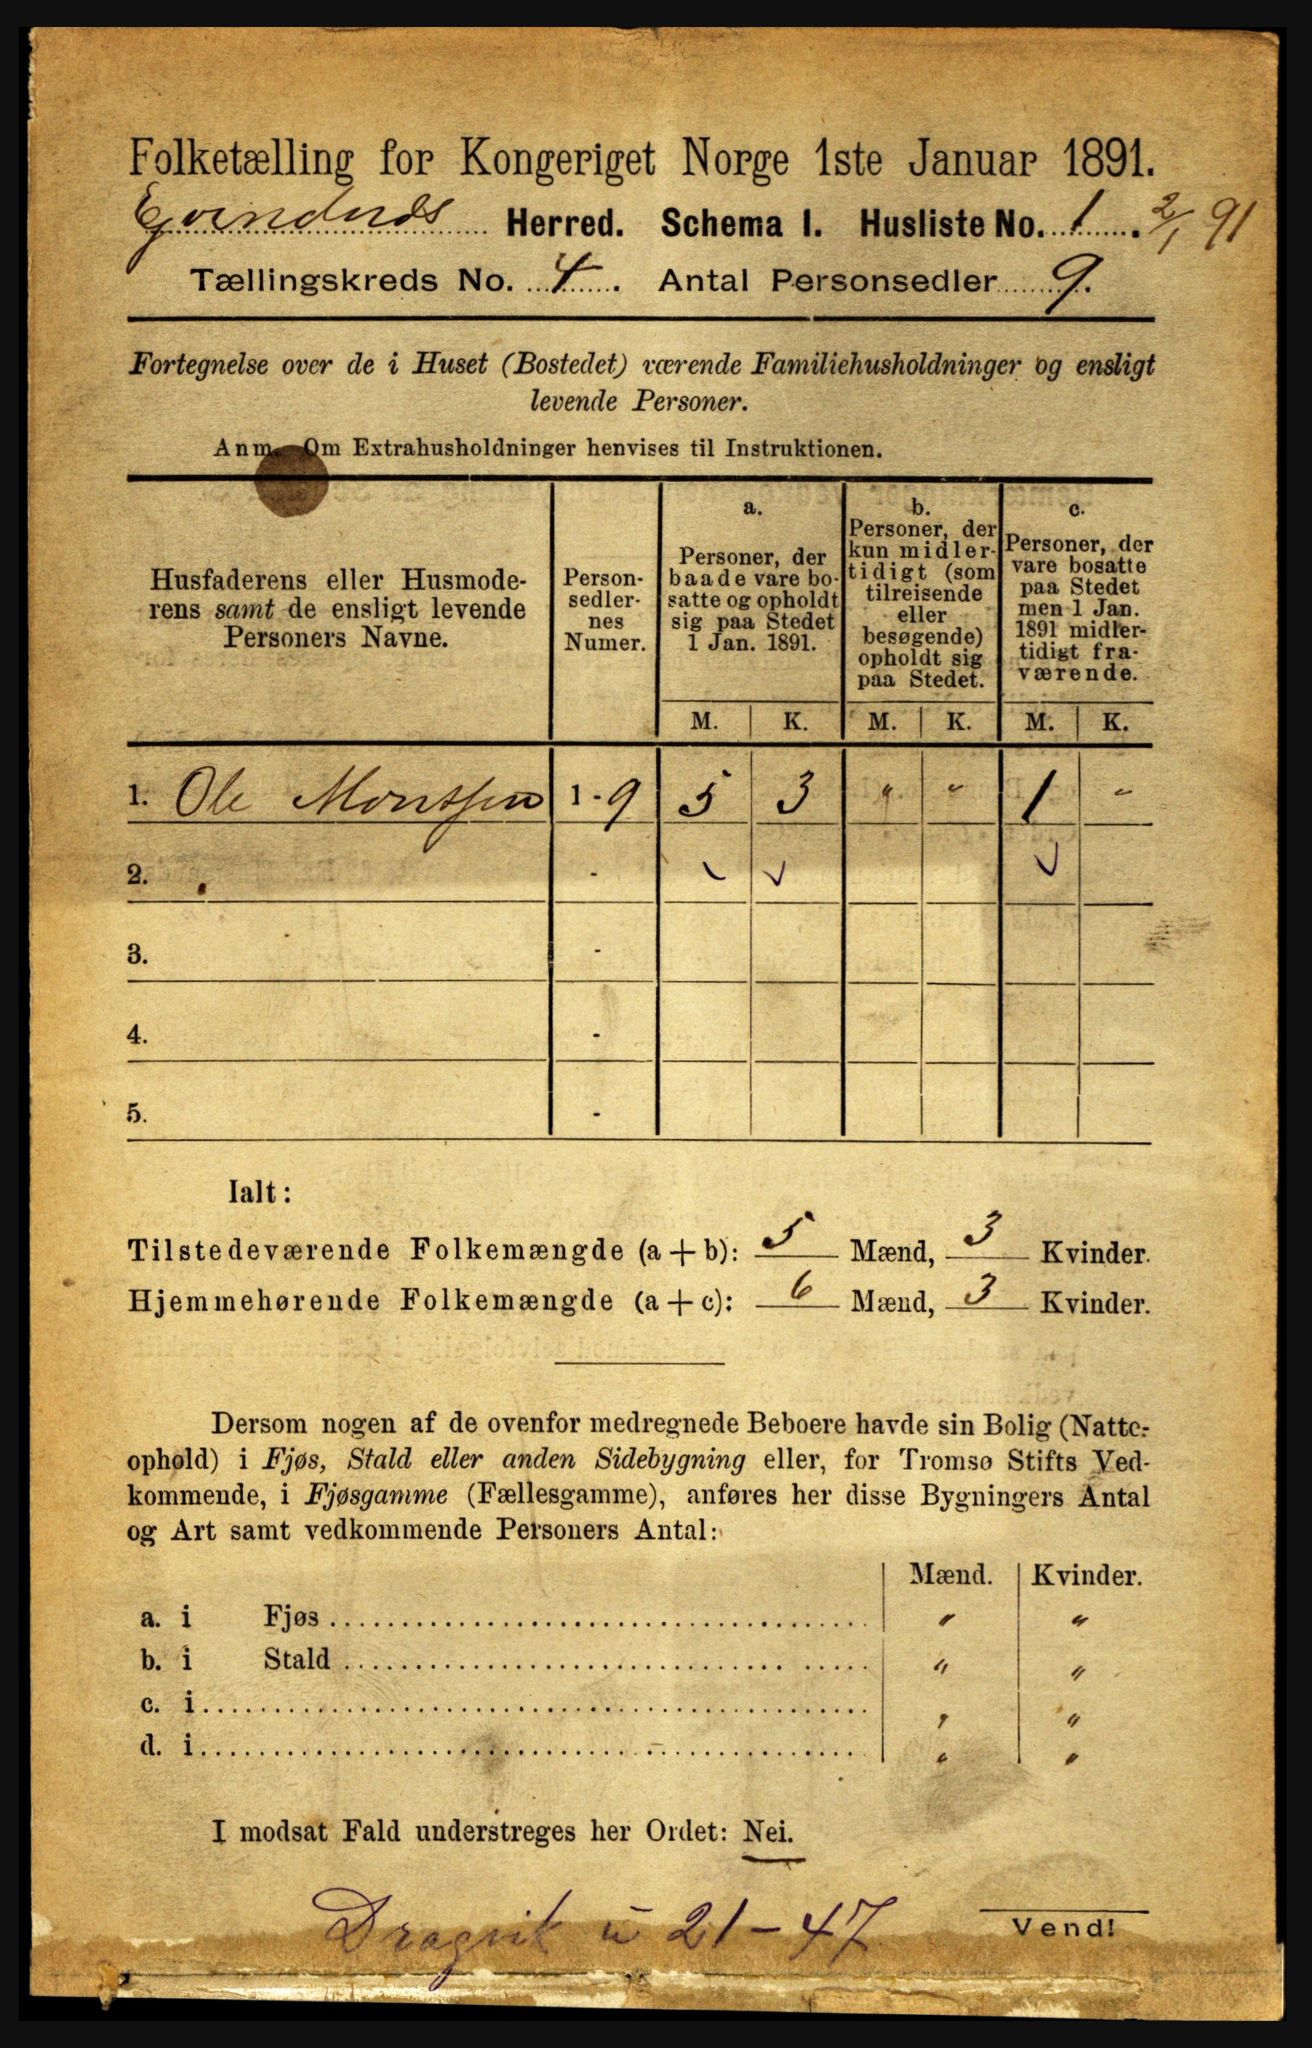 Folketælling for Kongeriget Norge 1ste Januar 1891.
Herred. Schema I. Husliste No. 1. 2/1 91
Tællingskreds No. 4. Antal Personsedler 9.
Fortegnelse over de i Huset (Bostedet) værende Familiehusholdninger og ensligt
levende Personer.
Anm. Om Extrahusholdninger henvises til Instruktionen.
Husfaderens eller Husmode-
rens samt de ensligt levende
Personers Navne.
Person-
sedler-
nes
Numer.
a.
Personer, der
baade vare bo-
satte og opholdt
sig paa Stedet
1 Jan. 1891.
b.
Personer, der
kun midler-
tidigt (som
tilreisende
eller
besøgende)
opholdt sig
paa Stedet.
c.
Personer, der
vare bosatte
paa Stedet
men 1 Jan.
1891 midler-
tidigt fra-
værende.
M. K. M. K. M. K.
1. Ole Montsen 1 - 9 5 3 " " 1 "
2. -
3. -
4. -
5. -
Ialt:
Tilstedeværende Folkemængde (a + b): 5 Mænd, 3 Kvinder.
Hjemmehørende Folkemængde (a + c): 6 Mænd, 3 Kvinder.
Dersom nogen af de ovenfor medregnede Beboere havde sin Bolig (Natte-
ophold) i Fjøs, Stald eller anden Sidebygning eller, for Tromsø Stifts Ved-
kommende, i Fjøsgamme (Fællesgamme), anføres her disse Bygningers Antal
og Art samt vedkommende Personers Antal:
Mænd. Kvinder.
a. i Fjøs " "
b. i Stald " "
c. i " "
d. i " "
I modsat Fald understreges her Ordet: Nei.
Dragvik u 21-47
Vend!